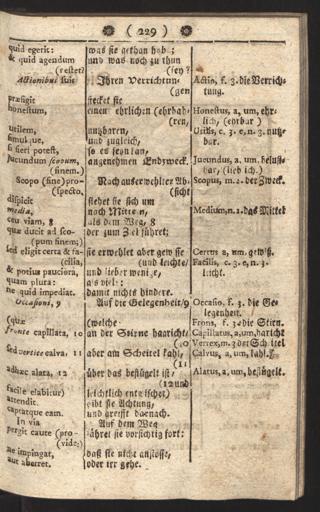 ( 229 )
quid egerit:
was sie gethan hab;
& quid agendum
und was noch zu thun
(restet?
(sey?
Actionibus suis
Ihren Verrichtun-
Actio, f. 3. die Verrich-
(gen
tung.
præfigit
stecket sie
honestum,
einen ehrlichen (ehrbah-
Honestus, a, um, ehr-
(ren,
lich, (ehrbar)
utilem,
nutzbaren,
Utilis, c. 3, e, n. 3. nutz-
simulque,
und zugleich,
bar.
si fieri potest,
so es seyn kan,
jucundum scopum,
angenehmen Endzweck.
Jucundus, a, um. belust-
(finem.)
bar, (lieblich.)
Scopo (fine) pro-
Nach auserwehlter Ab-
Scopus, m. 2. der Zweck.
(specto,
(sicht
dispicit
siehet sie sich um
media,
nach Mitteln,
Medium, n. 2. das Mittel
ceu viam, 8
als dem Weg, 8
quæ ducit ad sco-
der zum Ziel führet;
(pum finem;)
sed eligit certa & fa-
sie erwehlet aber gewisse
Certus a, um, gewiß.
(cilia,
(und leichte/
Facilis, c. 3. e, n. 3.
& potius pauciora,
und lieber wenige,
leicht.
quam plura:
als viele:
ne quid impediat.
damit nichts hindere.
Occasioni, 9
Auf die Gelegenheit/9
Occasio, f. 3. die Ge-
legenheit.
(quæ
(welche
Frons, f. 3. die Stirn.
fronte capillata, 10
an der Stirne haaricht
Capillatus, a, um, haaricht
(10
Vertex, m. 3 der Scheitel
sed vertice calva, 11
aber am Scheitel kahl,
Calvus, a, um, kahl.
(11
adhæc alata, 12
über das beflügelt ist;
Alatus, a, um, beflügelt.
(12 und
facile elabitur)
leichtlich entwischet)
attendit.
gibt sie Achtung,
captatque eam.
und greifft darnach.
In via
Auf dem Weg
pergit caute (pro-
fähret sie vorsichtig fort:
(vide:)
ne impingat,
daß sie nicht anstosse,
aut aberret.
oder irr gehe.